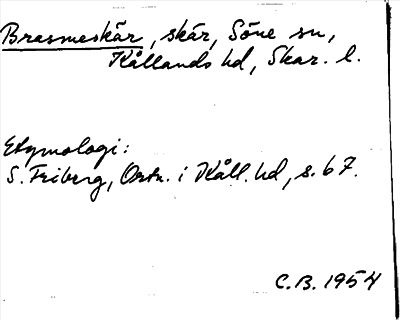 Brasmeskär, skär, Söne sn,
Kållands hd, Skar. l.
Etymologi:
S. Friberg, Ortn. i Kåll. hd, s. 67.
C.B. 1954